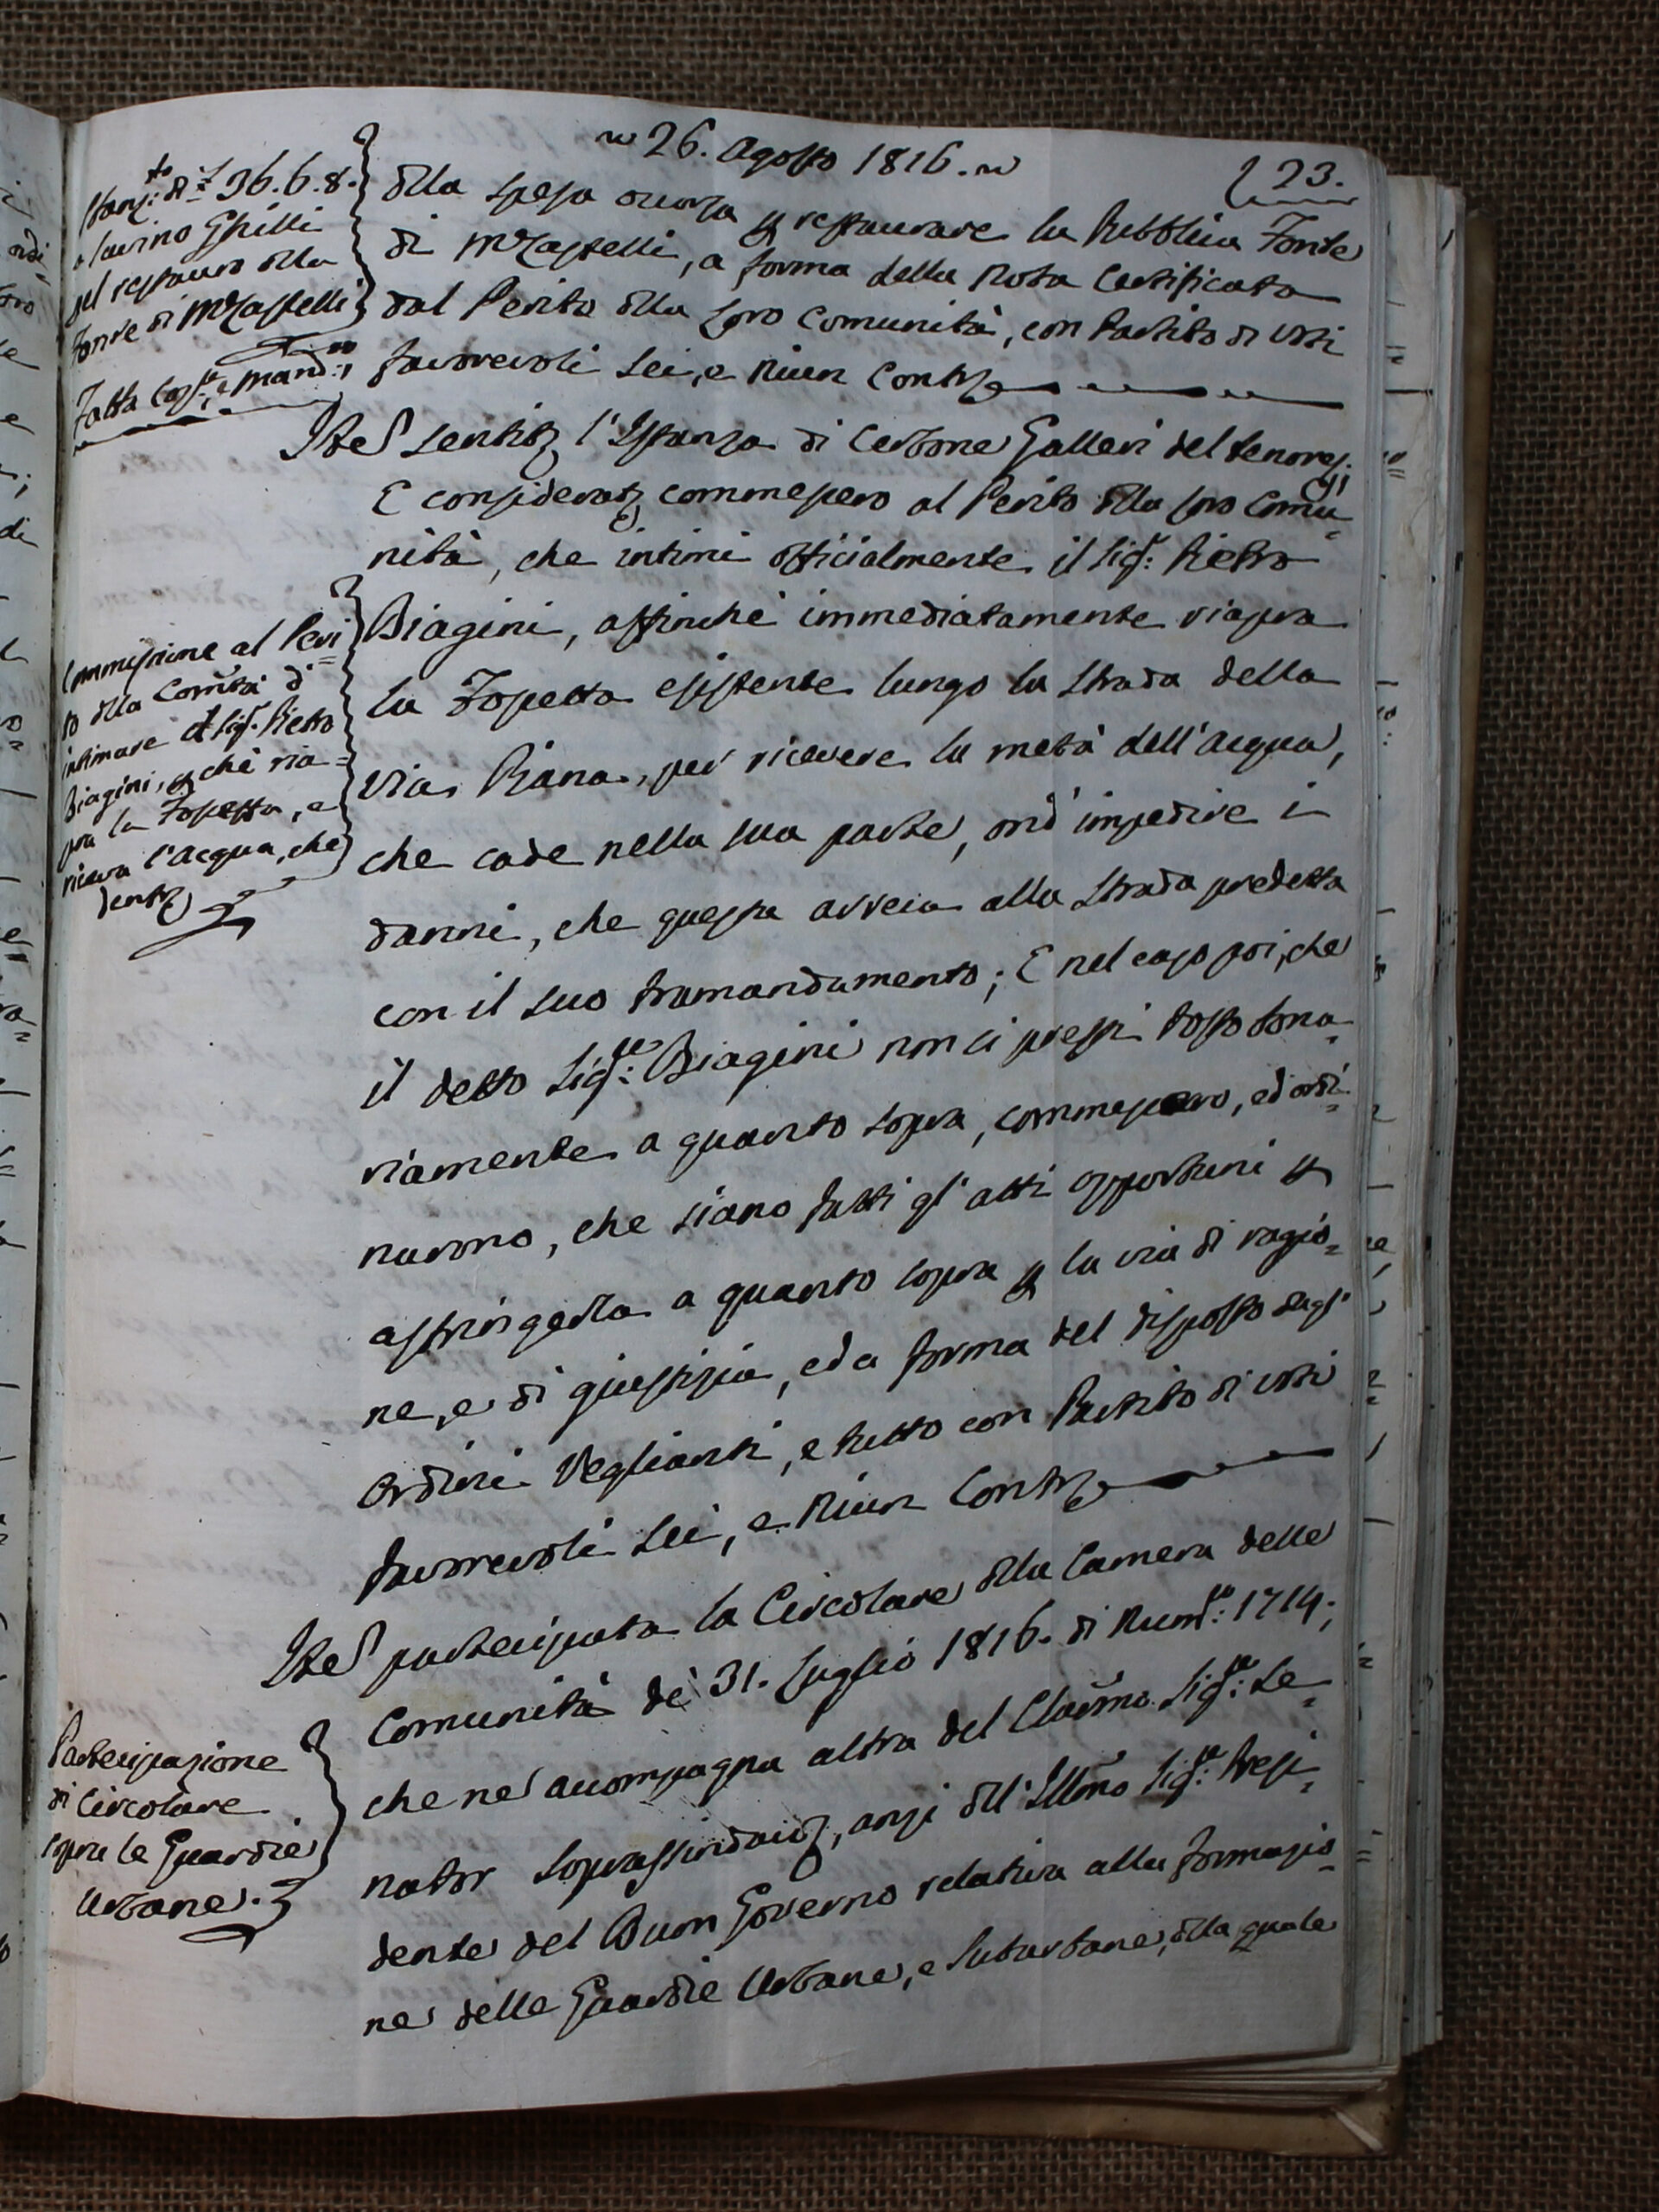 ~ 26. Agosto 1816. ~
23.
Stanz:to di £ 36.6.8.
a Saurino Ghilli
pel restauro della
Fonte di M:Castelli
Fatta Copia, e Mand:to
della spesa occorsa p restaurare la Pubblica Fonte
di M:Castelli, a forma della Nota Certificata
dal Perito della loro Comunità, con Partito di Voti
favorevoli Sei, e Niun Contr
Ite Sentit l'Istanza di Cerbone Galleri del tenore
E considerat commessero al Perito della loro Comu=
nità, che intimi officialmente il Sig:r Pietro
Biagini, affinchè immediatamente riapra
la Fossetta esistente lungo la Strada della
Via Piana, per ricevere la metà dell'Acqua,
che cade nella sua parte, ond'impedire i
danni, che questa arreca alla Strada predetta
con il suo tramandamento; E nel caso poi, che
il detto Sig:re Biagini non si presti tosto tona=
riamente a quanto sopra, commessero, ed ordi=
narono, che siano fatti gl'atti opportuni p
astringerlo a quanto sopra p la via di ragio=
ne, e di giustizia, ed a forma del disposto dagl'
Ordini Veglianti, e tutto con Partito di Voti
favorevoli Sei, e Niun Contr
Commissione al Peri=
to della Com:tà d'
intimare il Sig:r Pietro
Biagini, p chè ria=
pra la Fossetta, e
riceva l'Acqua, che
dentr
Ite partecipata la Circolare della Camera delle
Comunità de' 31. Luglio 1816. di Num:ro 1714;
che ne accompagna altra del Clarmo Sig:re Se=
nator Soprassindac, anzi dell'Illmo Sig:re Presi=
dente del Buon Governo relativa alla formazio=
ne delle Guardie Urbane, e Suburbane, della quale
Partecipazione
di Circolare
sopra le Guardie
Urbane.